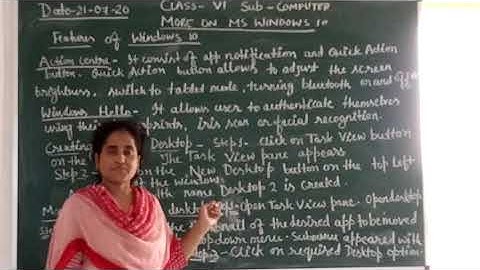 Date-21-07-20 CLASS- VI SUB-COMPUTER
MORE ON MS WINDOWS 10
Features of Windows 10
Action Centre - It consist of app notification and Quick Action
button. Quick Action button allows to adjust the screen
brightness, switch to tablet mode, turning bluetooth on and off
Windows Hello - It allows user to authenticate themselves
using their prints, iris scan or facial recognition.
Desktop - Step1- Click on Task View button
on the The Task View pane appears
Step 2- on the New Desktop button on the top left
of the window
with name Desktop 2 is created.
desktop - Open Task View pane. Open desktop
of the desired app to be moved
down menu. Submenu appeared with
Click on required Desktop option.